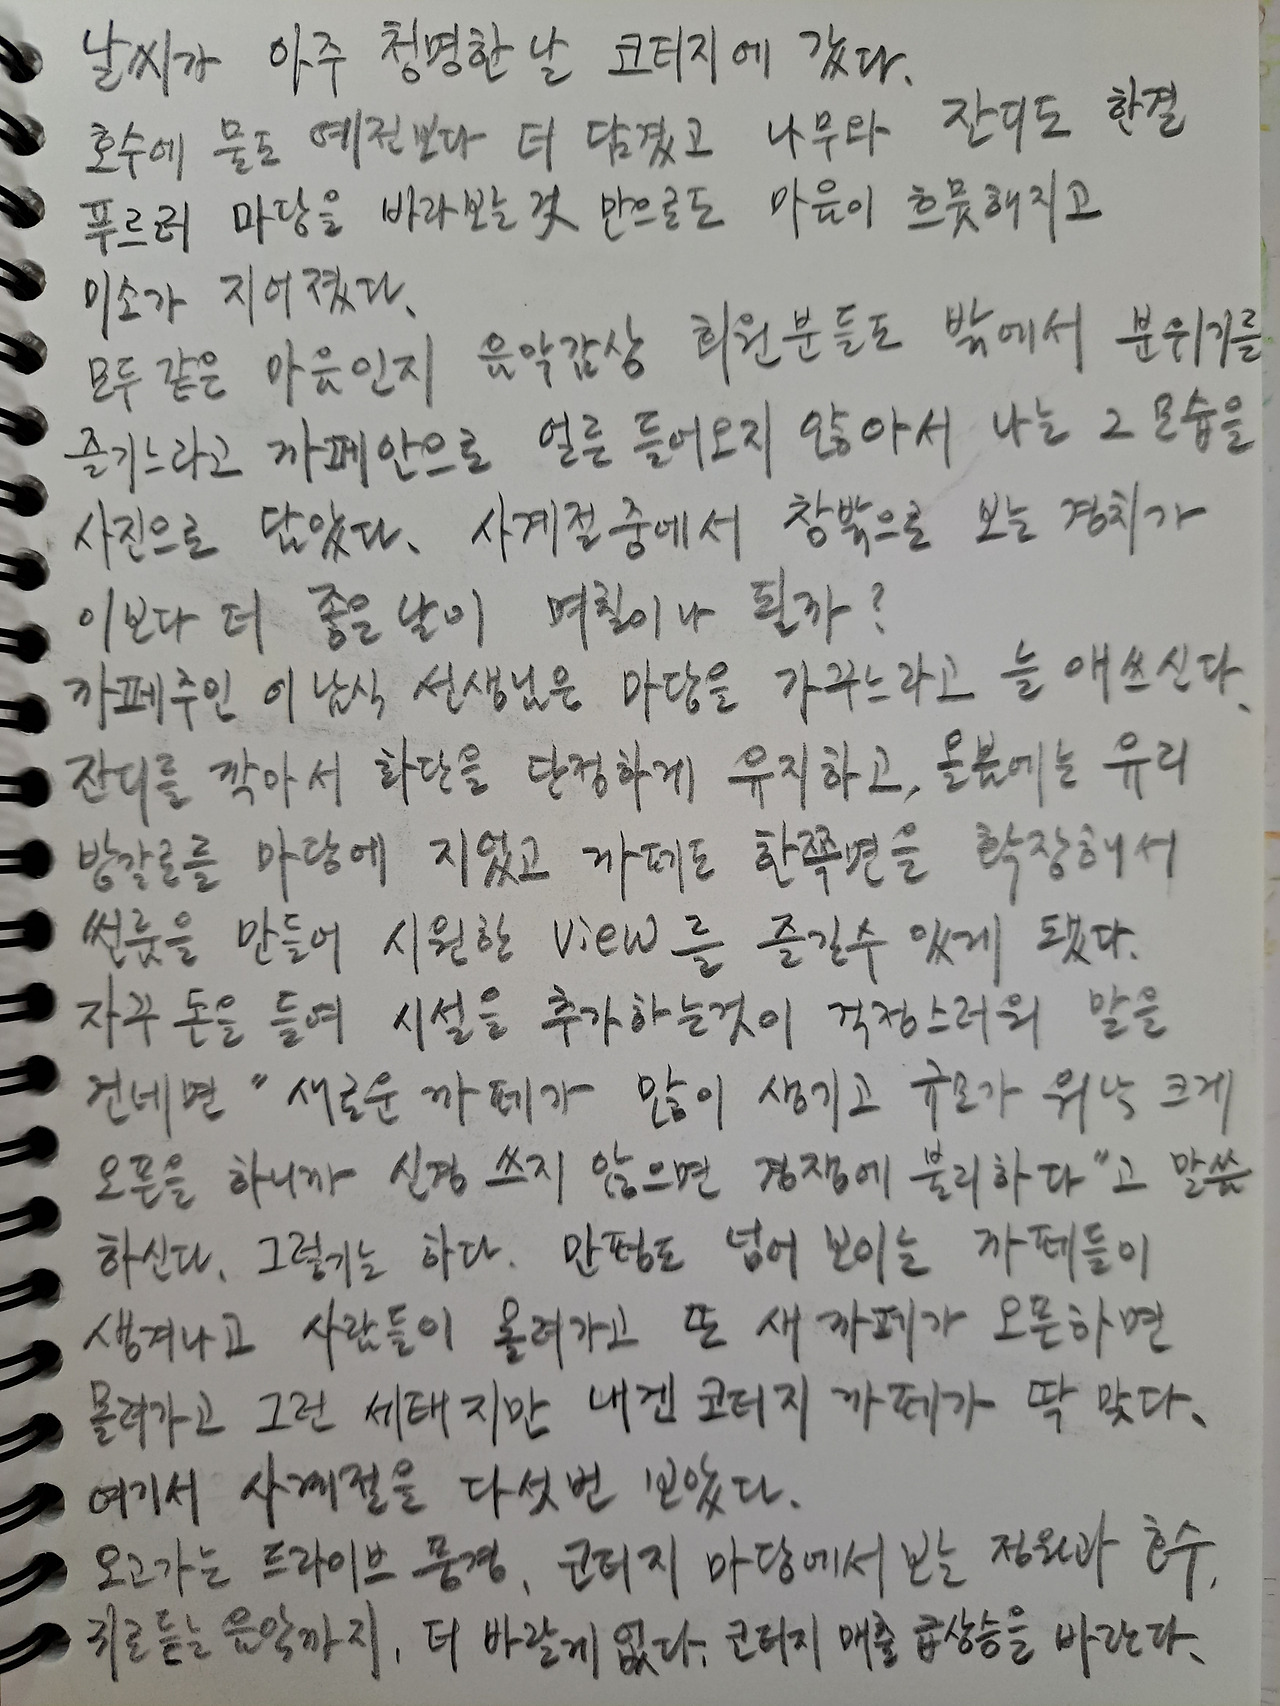 날씨가 아주 청명한 날 코터지에 갔다.
호수에 물도 예전보다 더 담겼고 나무와 잔디도 한결
푸르러 마당을 바라보는것 만으로도 마음이 흐뭇해지고
미소가 지어졌다.
모두 같은 마음인지 음악감상 회원분들도 밖에서 분위기를
즐기느라고 까페안으로 얼른 들어오지 않아서 나는 그 모습을
사진으로 담았다. 사계절중에서 창밖으로 보는 경치가
이보다 더 좋은날이 며칠이나 될까?
까페주인 이남식 선생님은 마당을 가꾸느라고 늘 애쓰신다.
잔디를 깍아서 화단을 단정하게 유지하고, 올봄에는 유리
방갈로를 마당에 지었고 까페도 한쪽면을 확장해서
썬룸을 만들어 시원한 view를 즐길수 있게 됐다.
자꾸 돈을 들여 시설을 추가하는것이 걱정스러워 말을
건네면 "새로운 까페가 많이 생기고 규모가 워낙 크게
오픈을 하니까 신경 쓰지 않으면 경쟁에 불리하다"고 말씀
하신다. 그렇기는 하다. 만평도 넘어 보이는 까페들이
생겨나고 사람들이 몰려가고 또 새 까페가 오픈하면
몰려가고 그런 세태지만 내겐 코터지 까페가 딱 맞다.
여기서 사계절을 다섯번 보았다.
오고가는 드라이브 풍경, 코터지 마당에서 보는 정원과 호수,
귀로 듣는 음악까지, 더 바랄게 없다. 코터지 매출 급상승을 바란다.